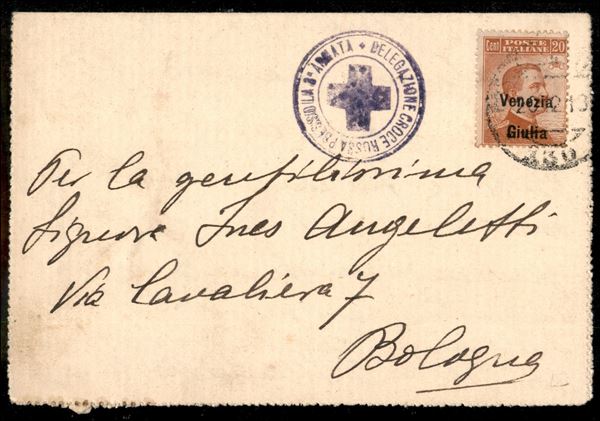 DELEGAZIONE CROCE ROSSA PRESSO LA 3ª ARMATA
Cent POSTE ITALIANE 20
Venezia
Giulia
Per la gentilissima
Signora Ines Angeletti
Via Cavaliera 7
Bologna